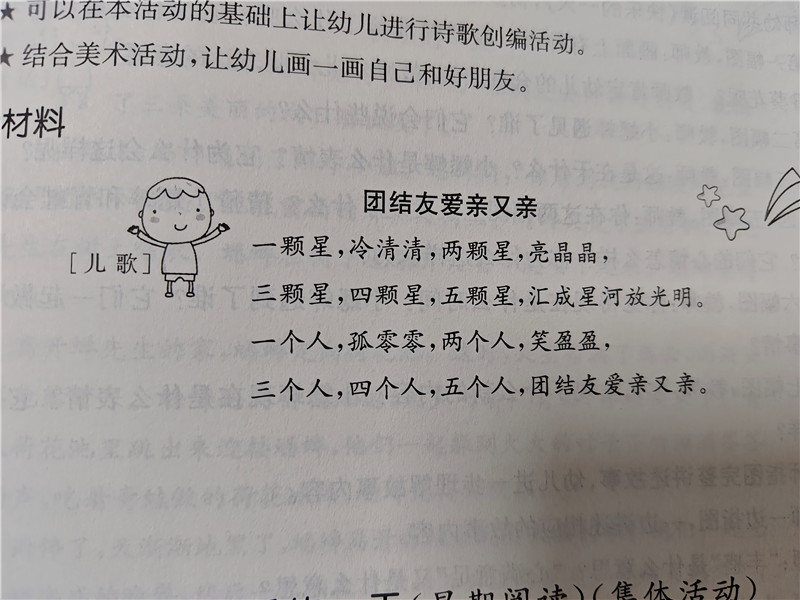 ★ 可以在本活动的基础上让幼儿进行诗歌创编活动。
★ 结合美术活动，让幼儿画一画自己和好朋友。
材料
团结友爱亲又亲
[儿歌]
一颗星，冷清清，两颗星，亮晶晶，
三颗星，四颗星，五颗星，汇成星河放光明。
一个人，孤零零，两个人，笑盈盈，
三个人，四个人，五个人，团结友爱亲又亲。
(星期阅读)(集体活动)